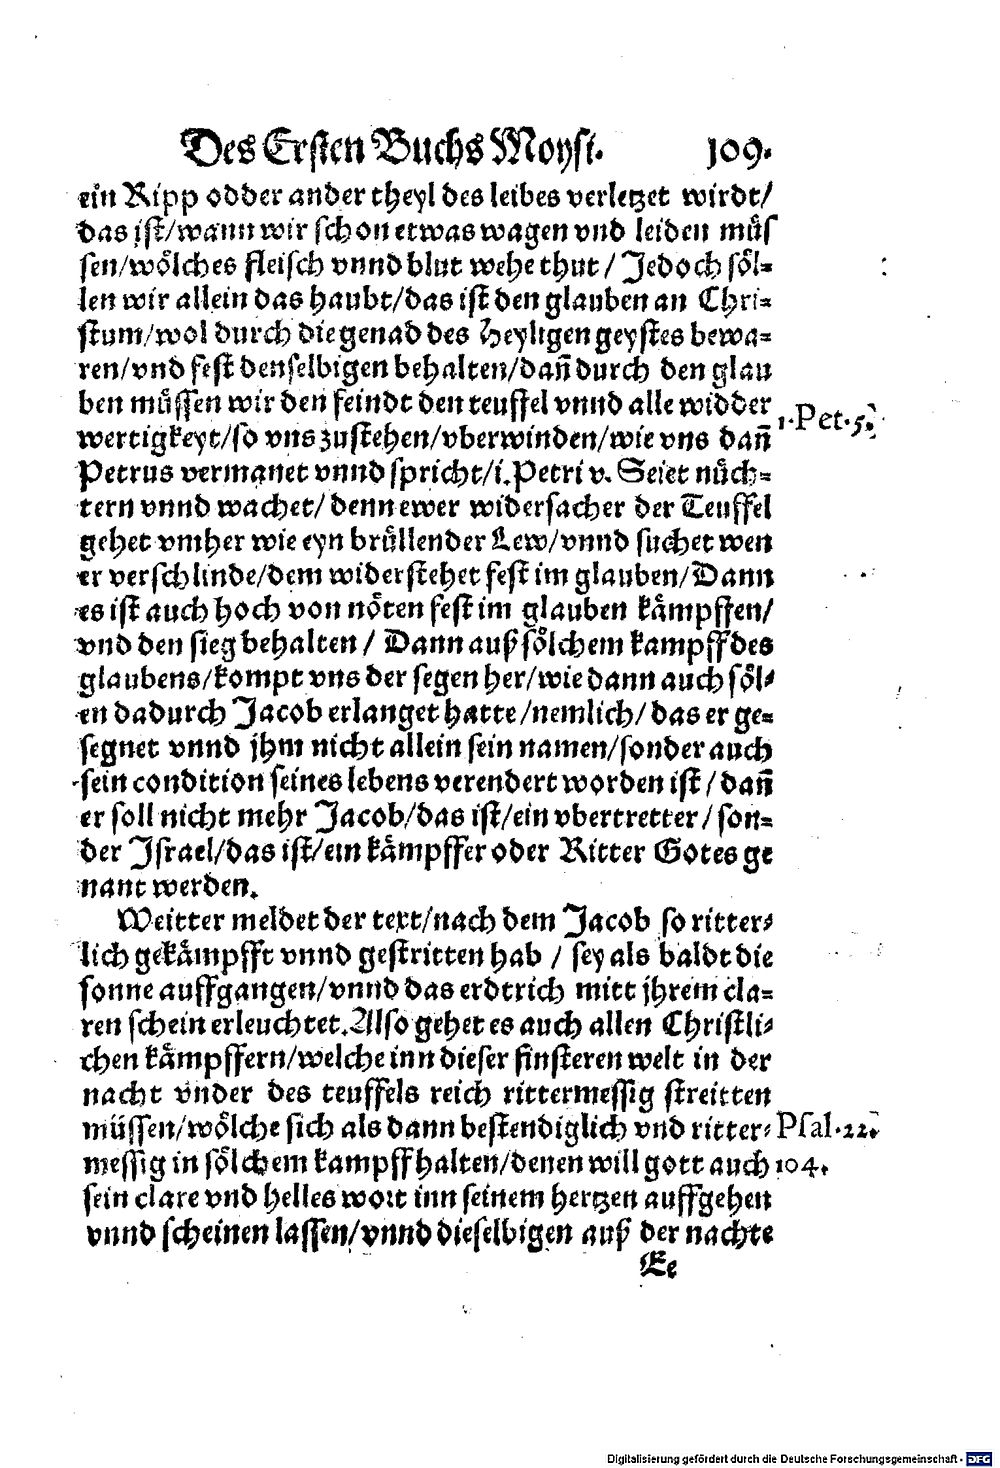 Des Ersten Buchs Moysi. 109.
ein Ripp odder ander theyl des leibes verletzet wirdt/
das ist/wann wir schon etwas wagen vnd leiden müs
sen/wölches fleisch vnnd blut wehe thut / Jedoch söl=
len wir allein das haubt/das ist den glauben an Chri=
stum/wol durch die genad des Heyligen geystes bewa=
ren/vnd fest denselbigen behalten/dañ durch den glau
ben müssen wir den feindt den teuffel vnnd alle widder
1.Pet.5.
wertigkeyt/so vns zustehen/vberwinden/wie vns dañ
Petrus vermanet vnnd spricht/i.Petri v. Seiet nüch=
tern vnnd wachet/ denn ewer widersacher der Teuffel
gehet vmher wie eyn brüllender Lew/vnnd suchet wen
er verschlinde/dem widerstehet fest im glauben/Dann
es ist auch hoch von nöten fest im glauben kämpffen/
vnd den sieg behalten / Dann auß sölchem kampff des
glaubens/kompt vns der segen her/wie dann auch söl=
en dadurch Jacob erlanget hatte/nemlich/das er ge=
segnet vnnd jhm nicht allein sein namen/sonder auch
sein condition seines lebens verendert worden ist/dañ
er soll nicht mehr Jacob/das ist/ein vbertretter/son=
der Israel/das ist/ein kämpffer oder Ritter Gotes ge
nant werden.
Weitter meldet der text/nach dem Jacob so ritter=
lich gekämpfft vnnd gestritten hab / sey als baldt die
sonne auffgangen/vnnd das erdtrich mitt jhrem cla=
ren schein erleuchtet. Also gehet es auch allen Christli=
chen kämpffern/welche inn dieser finsteren welt in der
nacht vnder des teuffels reich rittermessig streitten
müssen/wölche sich als dann bestendiglich vnd ritter=
Psal.22.
messig in sölchem kampff halten/denen will gott auch
104.
sein clare vnd helles wort inn seinem hertzen auffgehen
vnnd scheinen lassen/vnnd dieselbigen auß der nachte
Ee
Digitalisierung gefördert durch die Deutsche Forschungsgemeinschaft - DFG